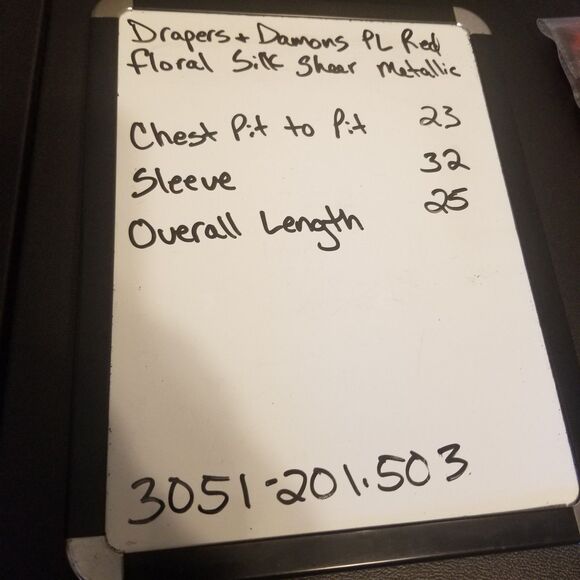 Drapers + Damons PL Red
floral Silk Sheer Metallic
Chest Pit to Pit 23
Sleeve 32
Overall Length 25
3051-201.503